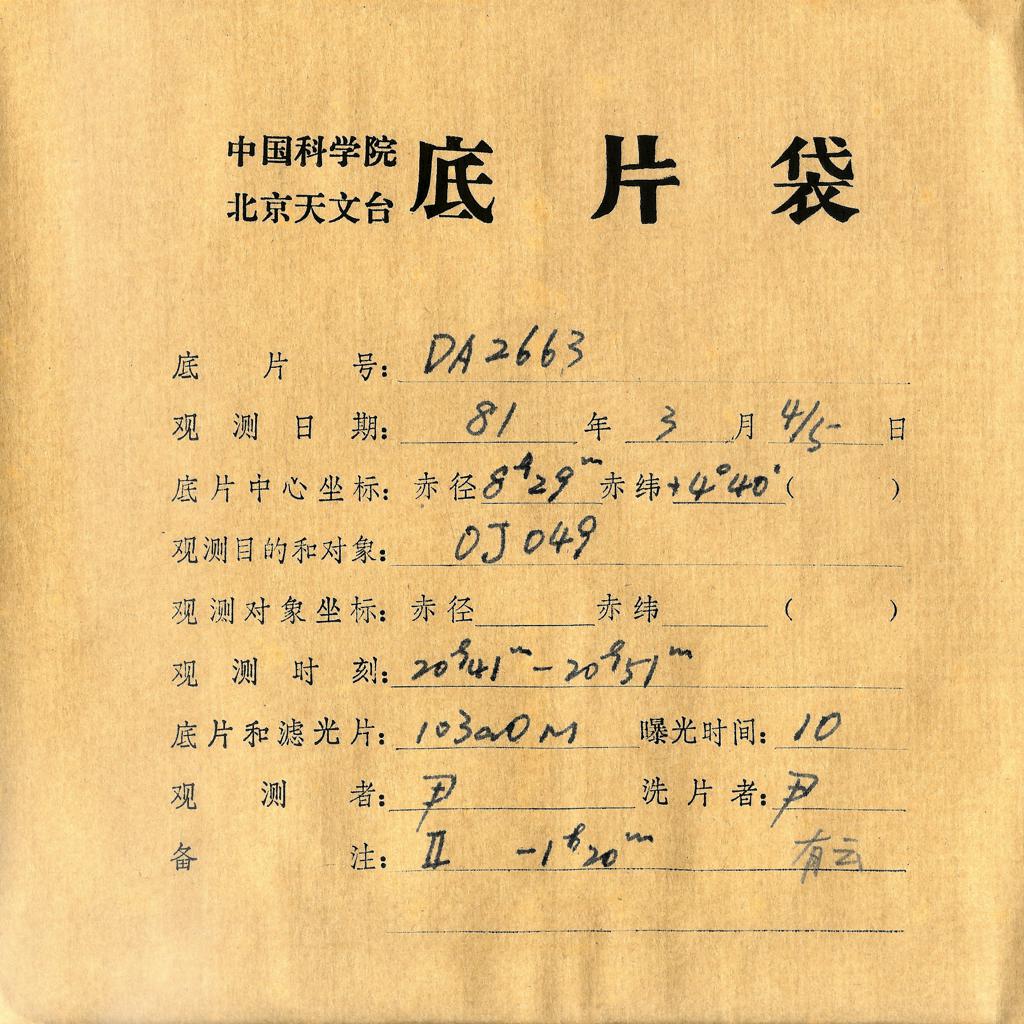 中国科学院
北京天文台
底片袋
底片号: DA2663
观测日期: 81年3月4/5日
底片中心坐标: 赤径8ʰ29ᵐ赤纬+4°40′( )
观测目的和对象: OJ049
观测对象坐标: 赤径 赤纬 ( )
观测时刻: 20ʰ41ᵐ-20ʰ51ᵐ
底片和滤光片: 103aO M 曝光时间: 10
观测者: 尹 洗片者: 尹
备注: II -1ʰ20ᵐ 有云